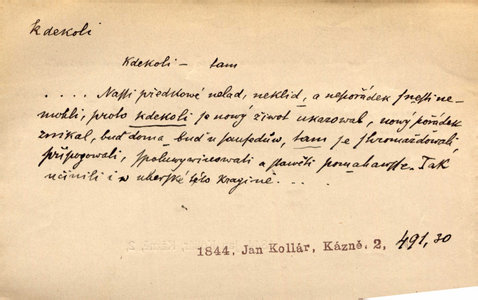 kdekoli
Kdekoli – tam
. . . . Nassi předkowé nelad, neklid, a nepořádek snesti ne-
mohli, proto kdekoli se nový život ukazowal, nowý pořádek
znikal, buď doma – buď u sausedůw, tam se shromažďowali,
připogowali, spoluwywinowali a stawěti pomáhawsse. Tak
učinili i w uherské této kragině. . . .
1844, Jan Kollár, Kázně. 2, 491,30